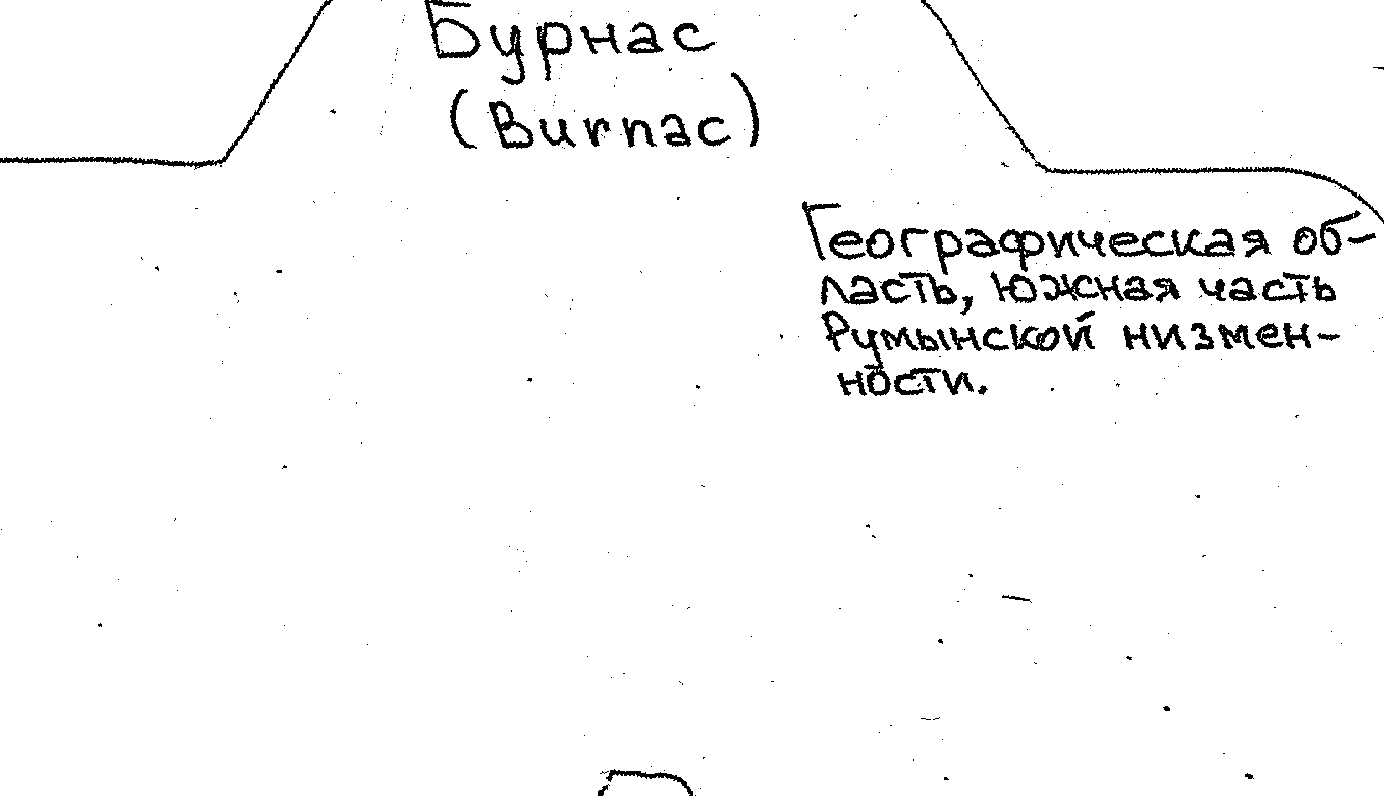 Бурнас
(Burnac)
Географическая об-
ласть, южная часть
Румынской низмен-
ности.